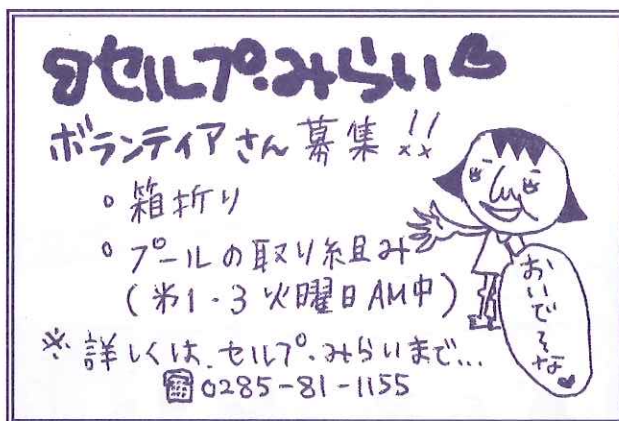 セルプ・みらい
ボランティアさん募集!!
○箱折り
○プールの取り組み
(第1・3火曜日AM中)
※詳しくは、セルプ・みらいまで…
☎0285-81-1155
おいでそな♥